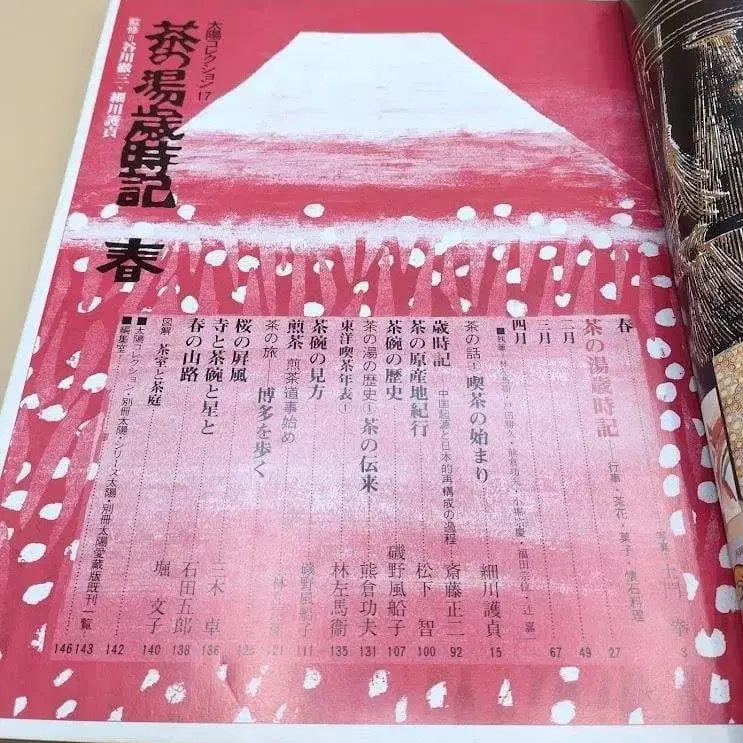 太陽コレクション17
茶の湯歳時記 春
監修＝谷川徹三、細川護貞
春
茶の湯歳時記──行事・茶花・菓子・懐石料理
写真 土門 拳 3
二月 27
三月 49
四月 67
茶の話1 喫茶の始まり 細川護貞 15
歳時記──中国起源と日本的再構成の過程 斎藤正二 92
茶の原産地紀行 松下 智 100
茶碗の歴史 磯野風船子 107
茶の湯の歴史1 茶の伝来 熊倉功夫 131
東洋喫茶年表1 林左馬衞 135
茶碗の見方 磯野風船子 111
煎茶 煎茶道事始め 林 121
茶の旅──博多を歩く 126
桜の屏風 三木 卓 136
寺と茶碗と星と 石田五郎 138
春の山路 堀 文子 140
図解 茶室と茶庭 142
■太陽コレクション・別冊太陽・シリーズ太陽・別冊太陽愛蔵版既刊一覧 143
■編集室 146